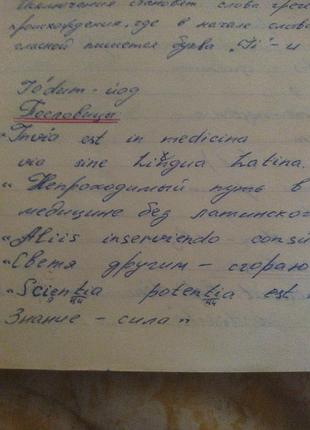 Исключения становят слова грече
происхождения, где в начале слова
гласной пишется буква „Ii" - и
Iódum - йод
Пословицы
"Invia est in medicina
via sine Lingua Latina.
"Непроходимый путь в
медицине без латинског
"Aliis inserviendo consu
"Светя другим - сгораю
"Scientia potentia est
ц ци ци
Знание - сила"